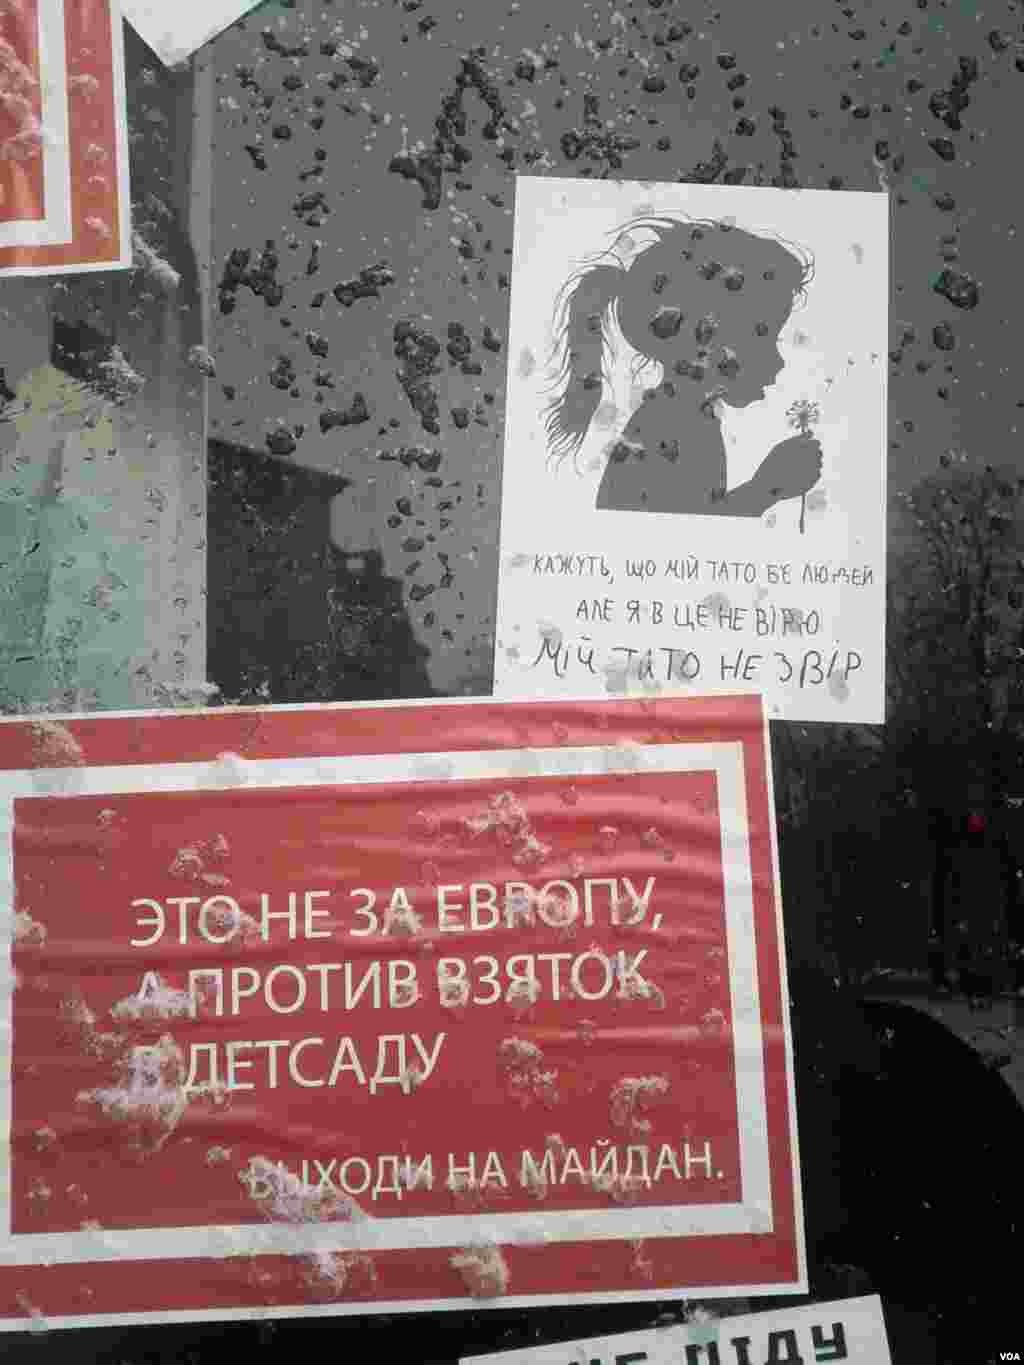 КАЖУТЬ, ЩО МІЙ ТАТО Б'Є ЛЮДЕЙ
АЛЕ Я В ЦЕ НЕ ВІРЮ
МІЙ ТАТО НЕ ЗВІР
ЭТО НЕ ЗА ЕВРОПУ,
А ПРОТИВ ВЗЯТОК
В ДЕТСАДУ
ВЫХОДИ НА МАЙДАН.
ПІДУ
VOA